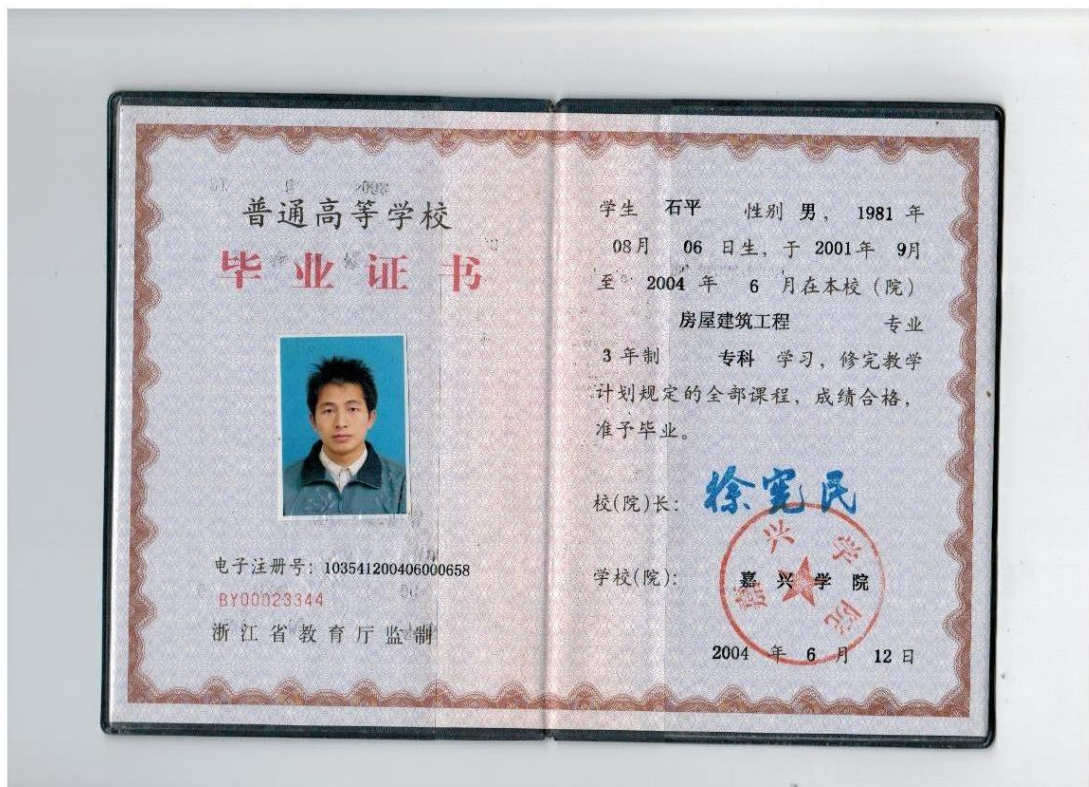 普通高等学校
毕业证书
电子注册号：103541200406000658
BY00023344
浙江省教育厅监制
学生 石平 性别 男，1981 年
08月 06 日生，于 2001年 9月
至 2004 年 6 月在本校（院）
房屋建筑工程 专业
3 年制 专科 学习，修完教学
计划规定的全部课程，成绩合格，
准予毕业。
校(院)长：徐宪民
学校(院)：嘉兴学院
嘉兴学院
2004 年 6 月 12日